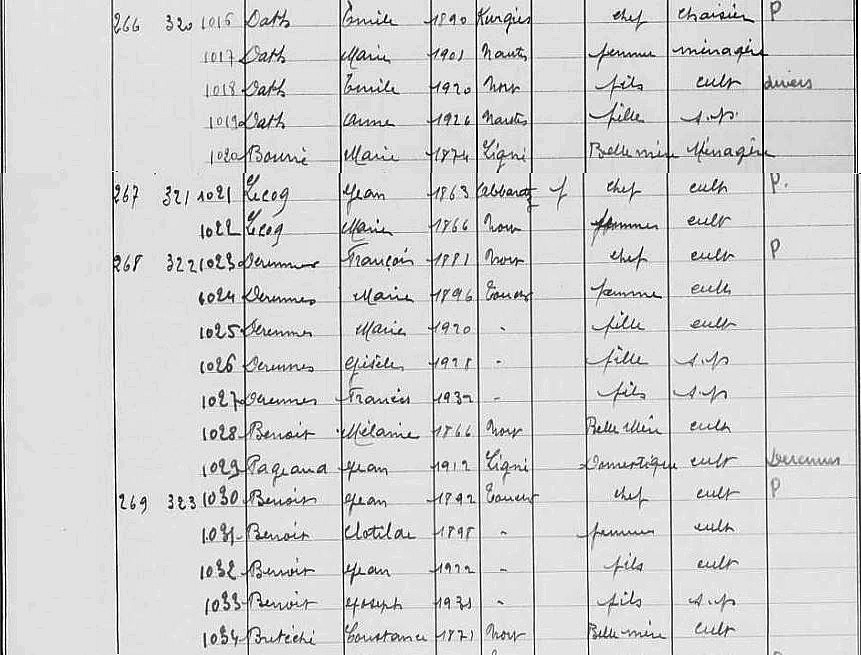 266 320 1016 Dath Emile 1890 Kurgies chef chaisier P
1017 Dath Marie 1901 Nantes femme ménagère
1018 Dath Emile 1920 Nort fils cult divers
1019 Dath Anne 1926 Nantes fille s.p.
1020 Marie 1874 Ligné Belle mère Ménagère
267 321 1021 Lecoq Jean 1863 chef cult P.
1022 Lecoq Marie 1866 Nort femme cult
268 322 1023 Derennes François 1881 Nort chef cult P
1024 Derennes Marie 1896 femme cult
1025 Derennes Marie 1920 - fille cult
1026 Derennes Gisèle 1928 - fille s.p
1027 Derennes Francis 1932 - fils s.p
1028 Benoit Mélanie 1866 Nort Belle Mère cult
1029 Pageaud Jean 1912 Ligné Domestique cult Derennes
269 323 1030 Benoit Jean 1892 chef cult P
1031 Benoit Clotilde 1898 - femme cult
1032 Benoit Jean 1922 - fils cult
1033 Benoit Joseph 1931 - fils s.p
1034 Bretéché Constance 1871 Nort Belle mère cult